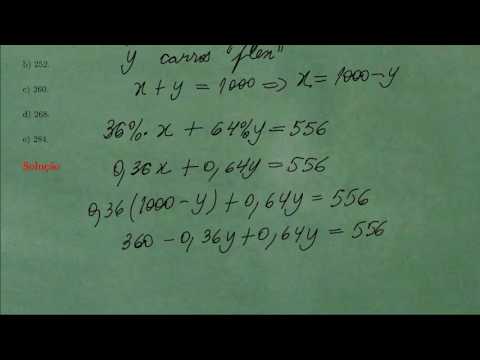 y carros "flex"
b) 252.
x + y = 1000 ⇒ x = 1000 - y
c) 260.
d) 268.
36%. x + 64%y = 556
e) 284.
Solução
0,36x + 0,64y = 556
0,36(1000 - y) + 0,64y = 556
360 - 0,36y + 0,64y = 556